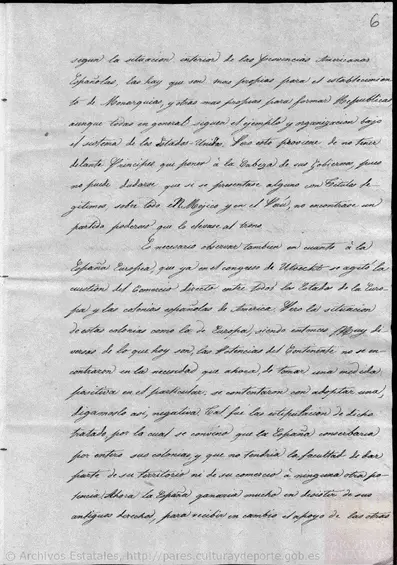 6
segun la situacion interior de las provincias Americanas
Españolas, las hay que son mas propias para el establecimien
to de Monarquias, y otras mas propias para formar Republicas
aunque todas en general siguen el ejemplo y organizacion bajo
el sistema de los Estados-Unidos. Pero esto proviene de no tener
delante Principes que poner á la Cabeza de sus Gobiernos, pues
no puede dudarse que si se presentase alguno con titulos le
gitimos, sobre todo en Mejico y en el Perú, no encontrase un
partido poderoso que le elevase al trono.
Es necesario observar tambien en cuanto á la
España Europea, que ya en el congreso de Utrecht se agitó la
cuestion del Comercio directo entre todos los Estados de la Euro
pa y las colonias españolas de America. Pero la situacion
de estas colonias como la de Europa, siendo entonces muy di
versas de lo que hoy son, las Potencias del Continente no se en
contraron en la necesidad que ahora, de tomar una medida
positiva en el particular: se contentaron con adoptar una,
digamoslo asi, negativa. Tal fue la estipulacion de dicho
tratado, por la cual se convino que la España conservaria
por entero sus colonias, y que no tendria la facultad de dar
parte de su territorio ni de su comercio á ninguna otra po
tencia. Ahora la España ganaria mucho en desistir de sus
antiguos derechos, para recibir en cambio el apoyo de las otras
© Archivos Estatales, http://pares.culturaydeporte.gob.es